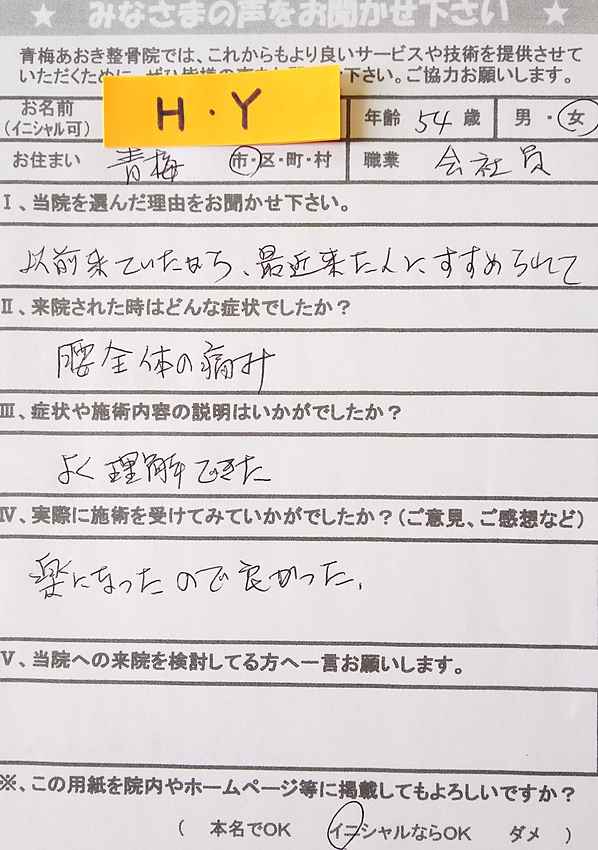 ★ みなさまの声をお聞かせ下さい ★
青梅あおき整骨院では、これからもより良いサービスや技術を提供させて
いただくために、下さい。ご協力お願いします。
お名前
(イニシャル可)
H・Y
年齢 54 歳
男・女
お住まい 青梅 市・区・町・村
職業 会社員
Ⅰ、当院を選んだ理由をお聞かせ下さい。
以前来ていたから、最近来た人に、すすめられて
Ⅱ、来院された時はどんな症状でしたか？
腰全体の痛み
Ⅲ、症状や施術内容の説明はいかがでしたか？
よく理解できた
Ⅳ、実際に施術を受けてみていかがでしたか？(ご意見、ご感想など)
楽になったので良かった。
Ⅴ、当院への来院を検討してる方へ一言お願いします。
※、この用紙を院内やホームページ等に掲載してもよろしいですか？
( 本名でOK イニシャルならOK ダメ )